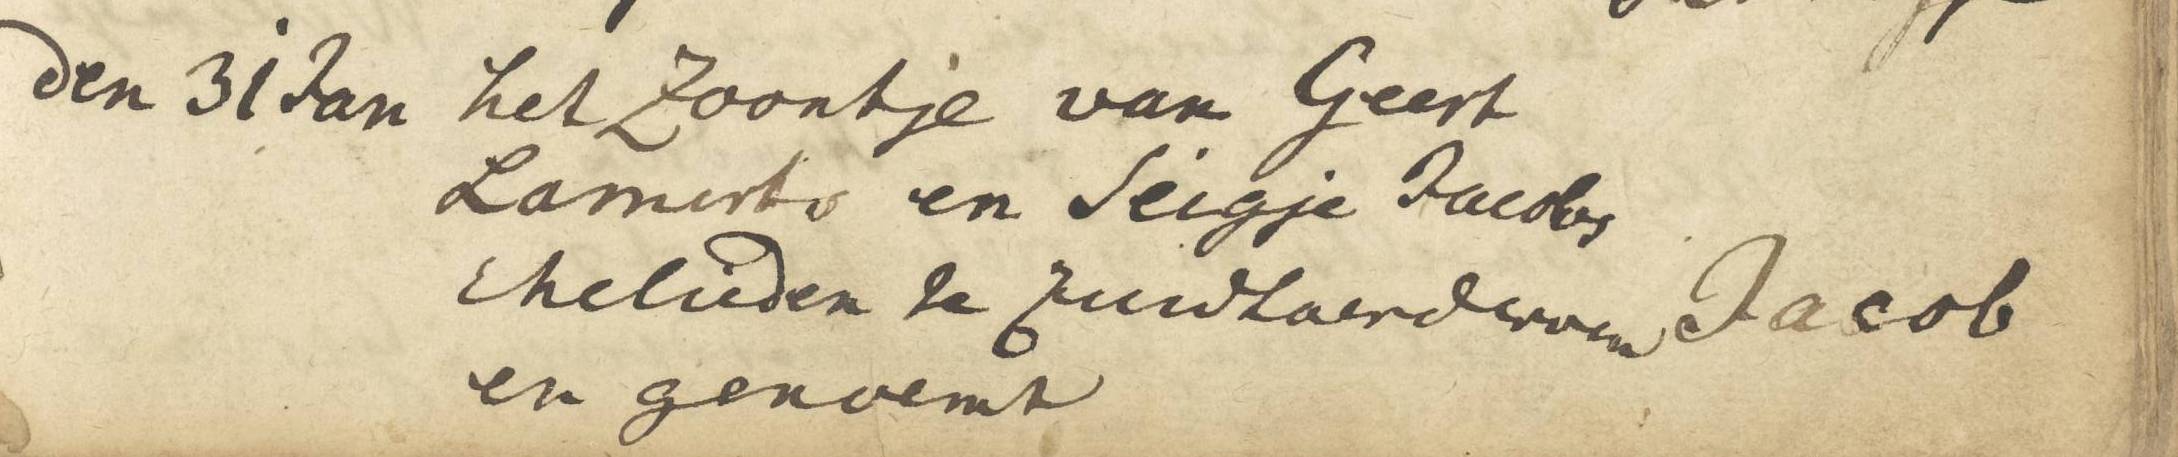 den 31 Jan het Zoontje van Geert
Lamerts en Seigje Jacobs
Ehelieden te Zuidlaerderveen Jacob
en genoemt